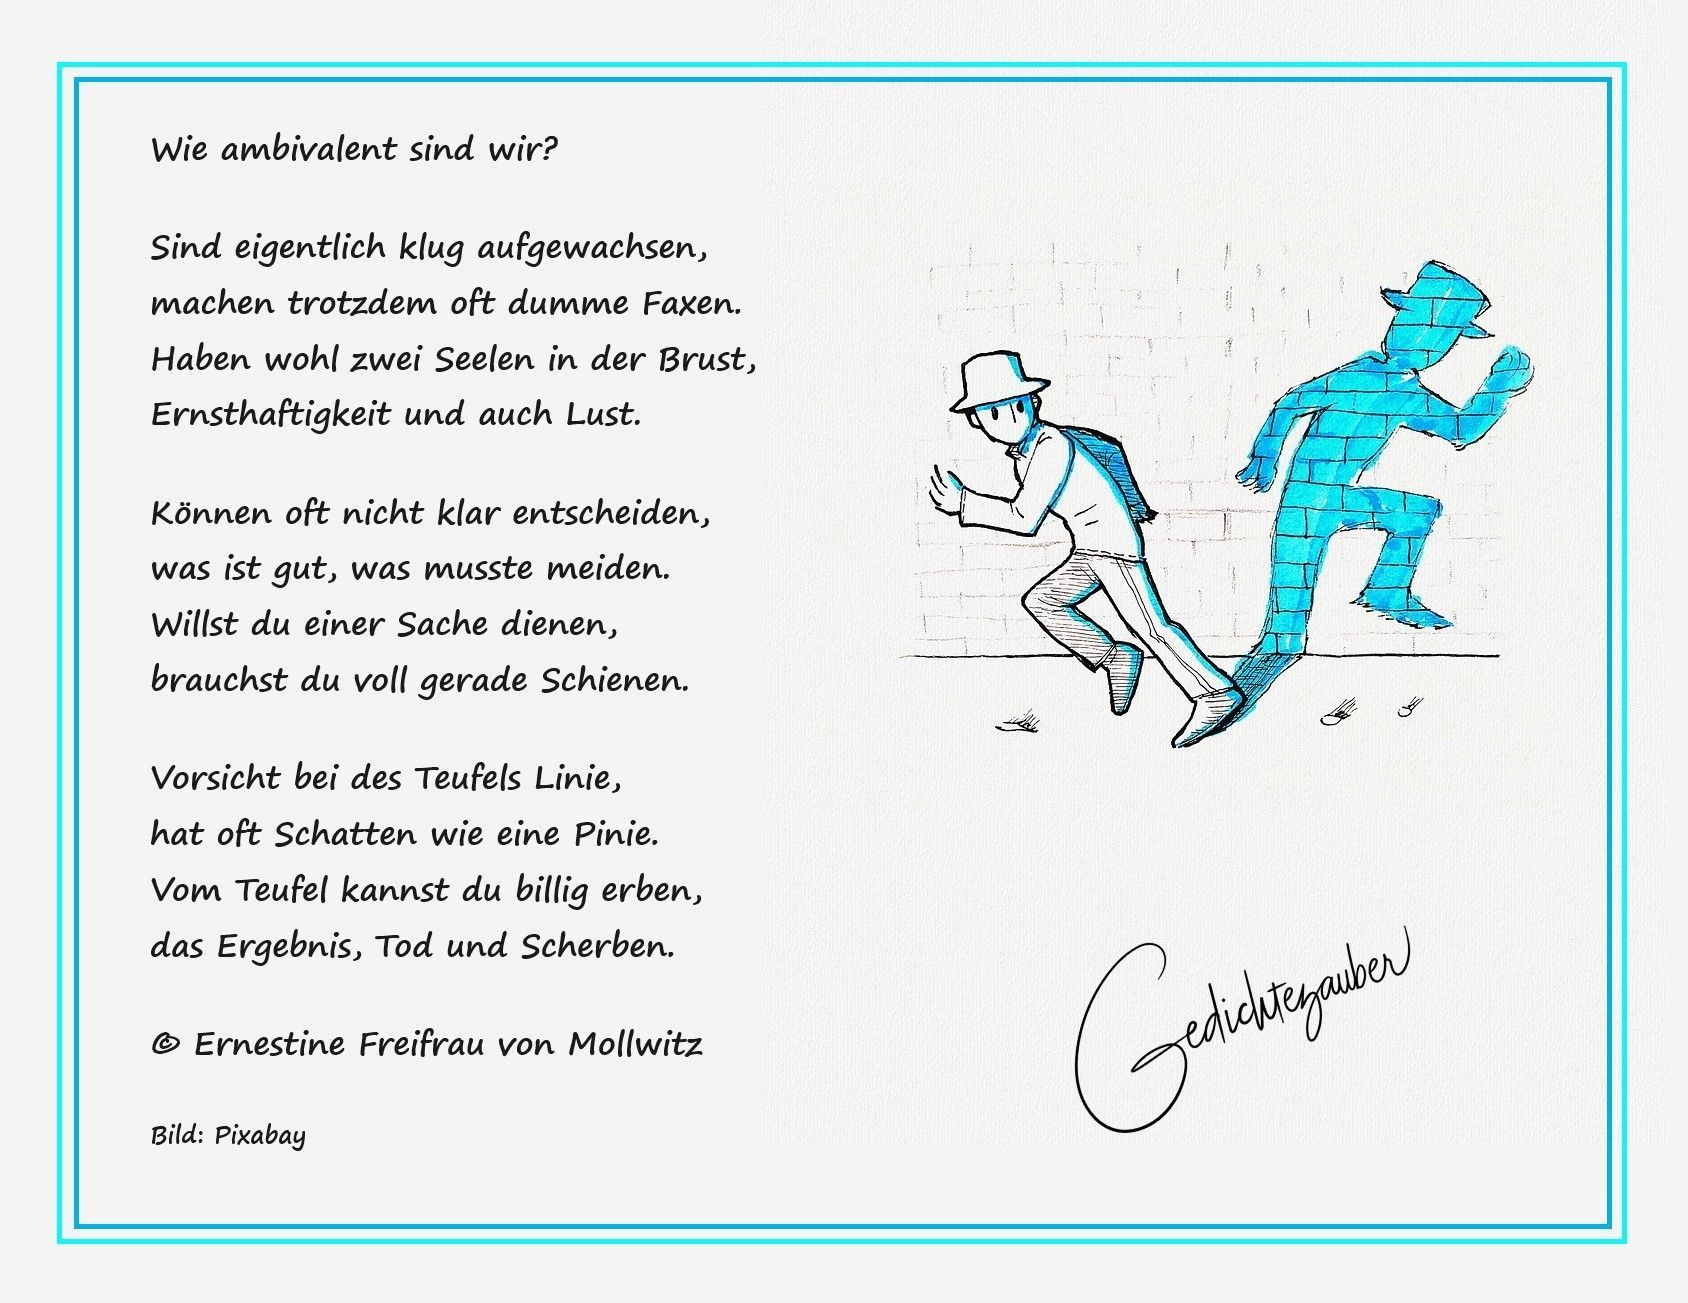 Wie ambivalent sind wir?
Sind eigentlich klug aufgewachsen,
machen trotzdem oft dumme Faxen.
Haben wohl zwei Seelen in der Brust,
Ernsthaftigkeit und auch Lust.
Können oft nicht klar entscheiden,
was ist gut, was musste meiden.
Willst du einer Sache dienen,
brauchst du voll gerade Schienen.
Vorsicht bei des Teufels Linie,
hat oft Schatten wie eine Pinie.
Vom Teufel kannst du billig erben,
das Ergebnis, Tod und Scherben.
© Ernestine Freifrau von Mollwitz
Bild: Pixabay
Gedichtezauber